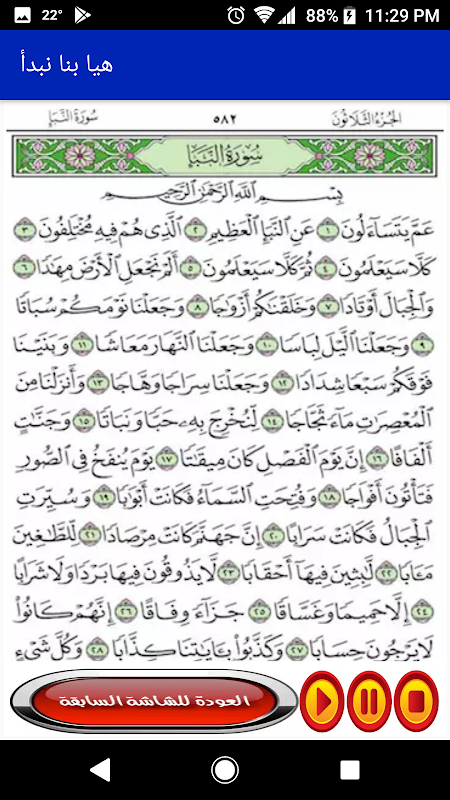 22° 88% 11:29 PM
هيا بنا نبدأ
الجزء الثلاثون ٥٨٢ سورة النبإ
سورة النبإ
بِسْمِ ٱللَّهِ ٱلرَّحْمَٰنِ ٱلرَّحِيمِ
عَمَّ يَتَسَآءَلُونَ ١ عَنِ ٱلنَّبَإِ ٱلْعَظِيمِ ٢ ٱلَّذِى هُمْ فِيهِ مُخْتَلِفُونَ ٣
كَلَّا سَيَعْلَمُونَ ٤ ثُمَّ كَلَّا سَيَعْلَمُونَ ٥ أَلَمْ نَجْعَلِ ٱلْأَرْضَ مِهَٰدًا ٦
وَٱلْجِبَالَ أَوْتَادًا ٧ وَخَلَقْنَٰكُمْ أَزْوَٰجًا ٨ وَجَعَلْنَا نَوْمَكُمْ سُبَاتًا
٩ وَجَعَلْنَا ٱلَّيْلَ لِبَاسًا ١٠ وَجَعَلْنَا ٱلنَّهَارَ مَعَاشًا ١١ وَبَنَيْنَا
فَوْقَكُمْ سَبْعًا شِدَادًا ١٢ وَجَعَلْنَا سِرَاجًا وَهَّاجًا ١٣ وَأَنزَلْنَا مِنَ
ٱلْمُعْصِرَٰتِ مَآءً ثَجَّاجًا ١٤ لِّنُخْرِجَ بِهِۦ حَبًّا وَنَبَاتًا ١٥ وَجَنَّٰتٍ
أَلْفَافًا ١٦ إِنَّ يَوْمَ ٱلْفَصْلِ كَانَ مِيقَٰتًا ١٧ يَوْمَ يُنفَخُ فِى ٱلصُّورِ
فَتَأْتُونَ أَفْوَاجًا ١٨ وَفُتِحَتِ ٱلسَّمَآءُ فَكَانَتْ أَبْوَٰبًا ١٩ وَسُيِّرَتِ
ٱلْجِبَالُ فَكَانَتْ سَرَابًا ٢٠ إِنَّ جَهَنَّمَ كَانَتْ مِرْصَادًا ٢١ لِّلطَّٰغِينَ
مَـَٔابًا ٢٢ لَّٰبِثِينَ فِيهَآ أَحْقَابًا ٢٣ لَّا يَذُوقُونَ فِيهَا بَرْدًا وَلَا شَرَابًا
٢٤ إِلَّا حَمِيمًا وَغَسَّاقًا ٢٥ جَزَآءً وِفَاقًا ٢٦ إِنَّهُمْ كَانُوا۟
لَا يَرْجُونَ حِسَابًا ٢٧ وَكَذَّبُوا۟ بِـَٔايَٰتِنَا كِذَّابًا ٢٨ وَكُلَّ شَىْءٍ
العودة للشاشة السابقة